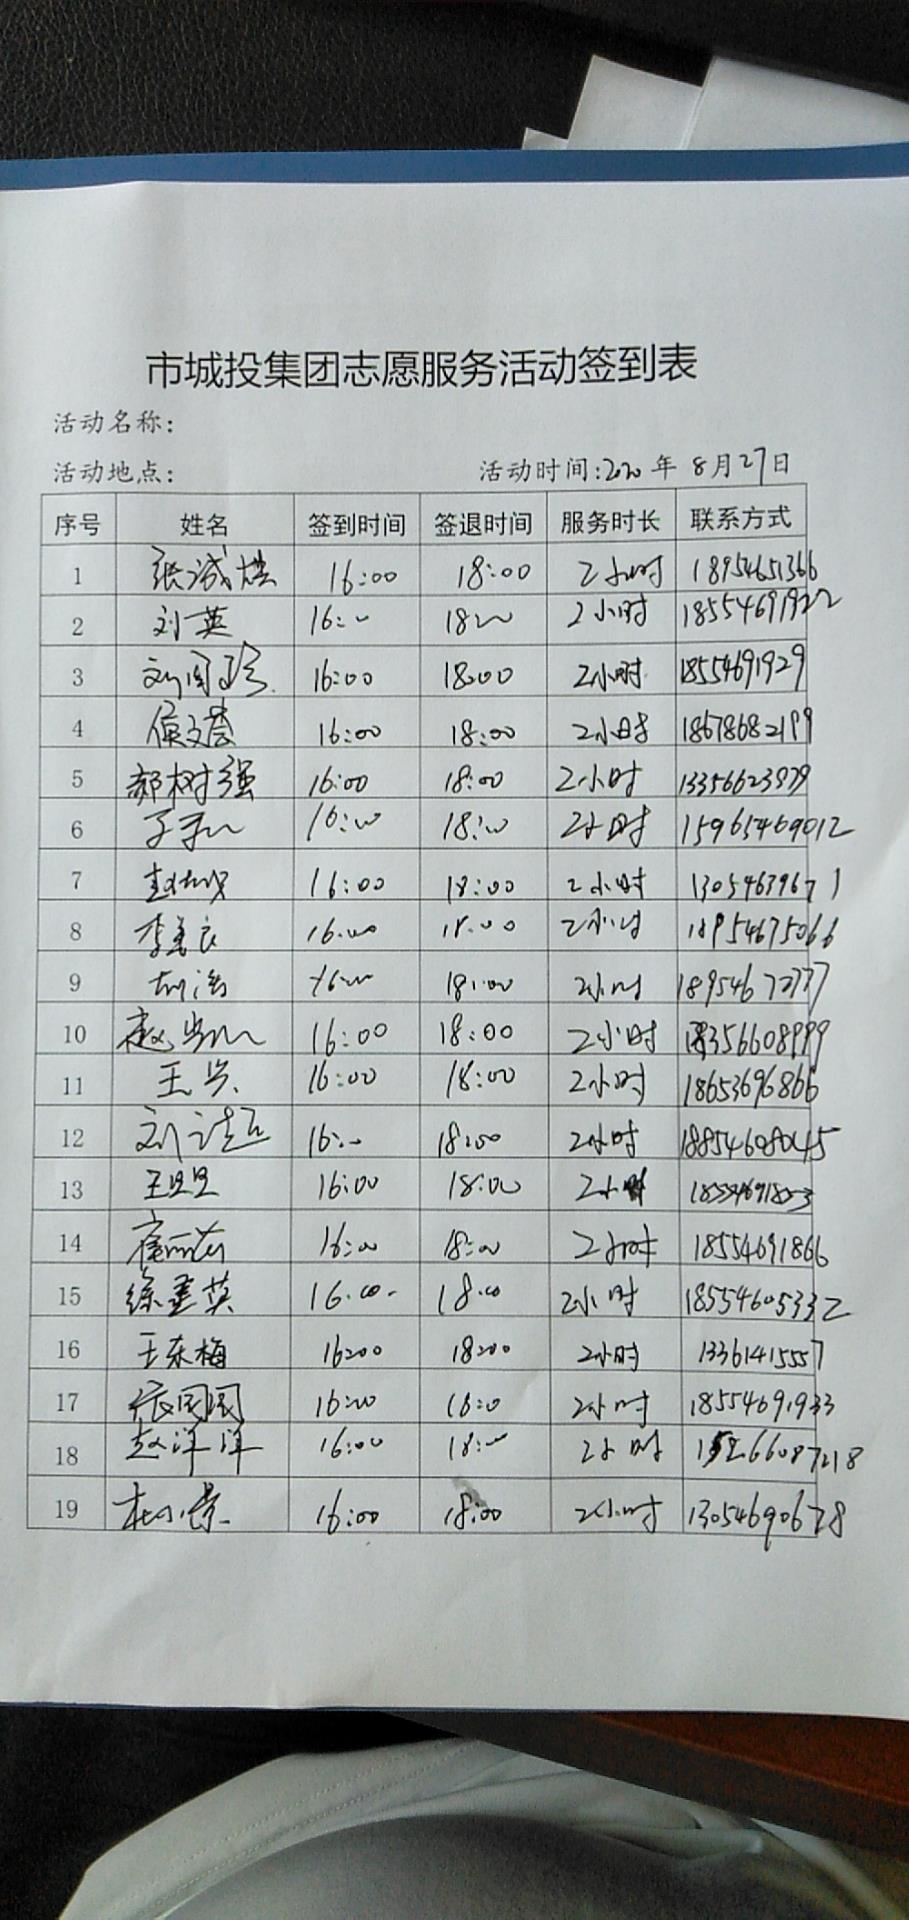 市城投集团志愿服务活动签到表
活动名称:
活动地点: 活动时间:2020年 8月27日
序号 姓名 签到时间 签退时间 服务时长 联系方式
1 张诚 16:00 18:00 2小时 18954651366
2 刘英 16:00 18:00 2小时 18554691922
3 16:00 18:00 2小时 18554691929
4 侯文荟 16:00 18:00 2小时 18678682199
5 郝树强 16:00 18:00 2小时 13356623979
6 16:00 18:00 2小时 15965469012
7 16:00 18:00 2小时 13054639671
8 李 16:00 18:00 2小时 18954675066
9 16:00 18:00 2小时 18954672777
10 16:00 18:00 2小时
11 王 16:00 18:00 2小时 18653696866
12 刘 16:00 18:00 2小时
13 王旦旦 16:00 18:00 2小时
14 崔 16:00 18:00 2小时 18554691866
15 徐 英 16:00 18:00 2小时 18554605332
16 王东梅 16:00 18:00 2小时 13361415557
17 张園園 16:00 18:00 2小时 18554691933
18 赵洋洋 16:00 18:00 2小时
19 杜小 16:00 18:00 2小时 13054690678